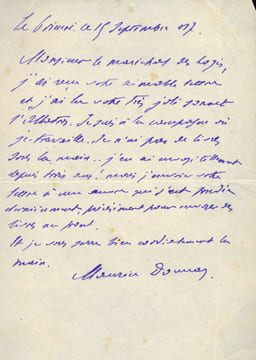 Le Prieuré ce 15 Septembre 917.
Monsieur le maréchal des Logis,
j'ai reçu votre aimable lettre
et j'ai lu votre très joli sonnet
l'Albatros. Je suis à la campagne où
je travaille. Je n'ai pas de livres
sous la main.. j'en ai envoyé tellement
depuis trois ans! mais j'envoie votre
lettre à une œuvre qui s'est fondée
dernièrement, précisément pour envoyer des
livres au front.
Et je vous serre bien cordialement la
main.
Maurice Donnay